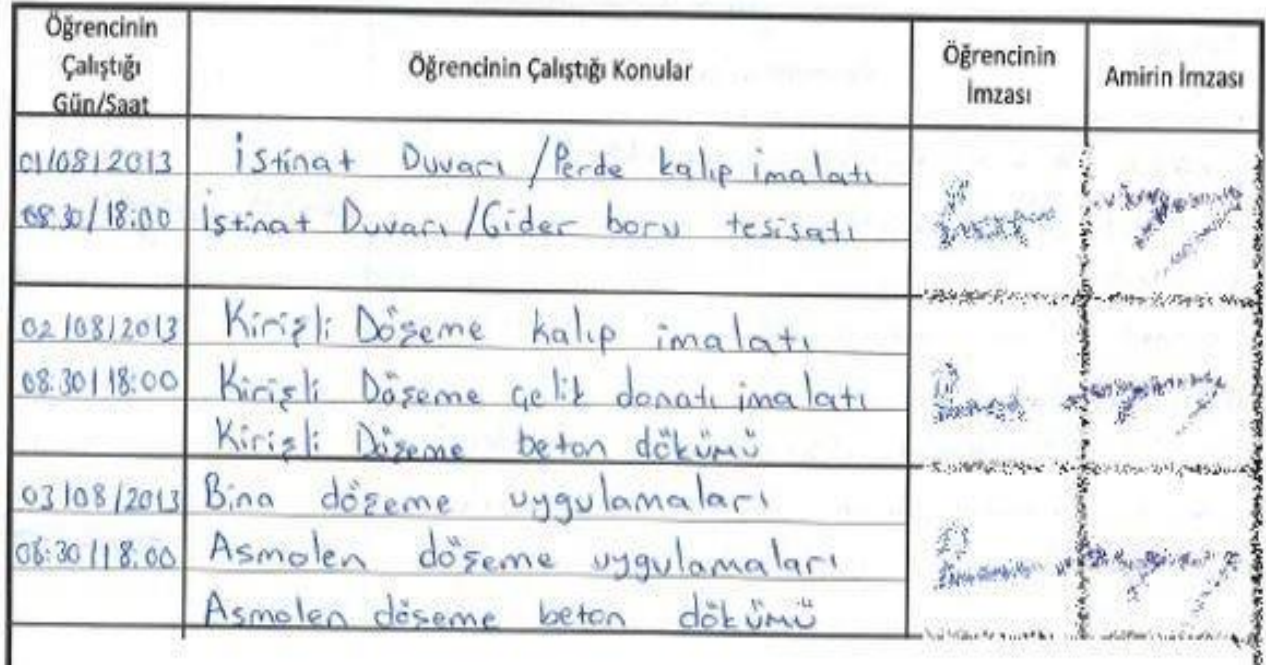 Öğrencinin Çalıştığı Gün/Saat
Öğrencinin Çalıştığı Konular
Öğrencinin İmzası
Amirin İmzası
01/08/2013
İstinat Duvarı /Perde kalıp imalatı
08.30/18:00
İstinat Duvarı /Gider boru tesisatı
02/08/2013
Kirişli Döşeme kalıp imalatı
08:30/18:00
Kirişli Döşeme Çelik donatı imalatı
Kirişli Döşeme beton dökümü
03/08/2013
Bina döşeme uygulamaları
08:30/18:00
Asmolen döşeme uygulamaları
Asmolen döşeme beton dökümü